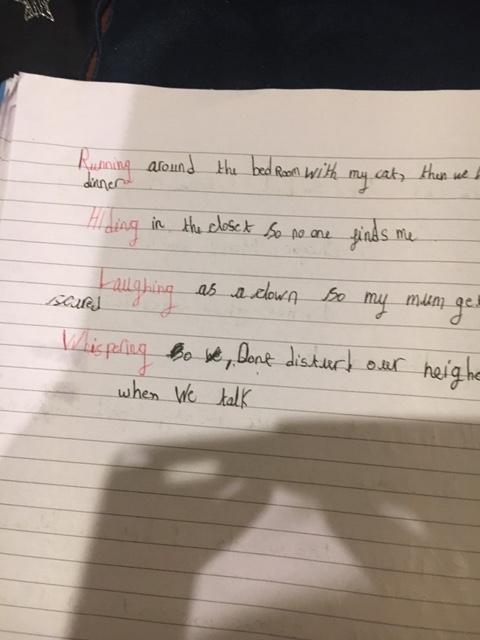 Running around the bedRoom with my cat, then we
dinner
Hiding in the closet so no one finds me
Laughing as a clown so my mum ge
scared
Whispering so we, Dont disturb our neighb
when We talk